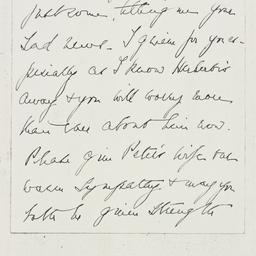 just come, telling me your
sad news. I grieve for you es-
pecially as I know Herbert is
away & you will worry more
than ever about him now.
Please give Peter's wife our
warm sympathy & may you
both be given strength